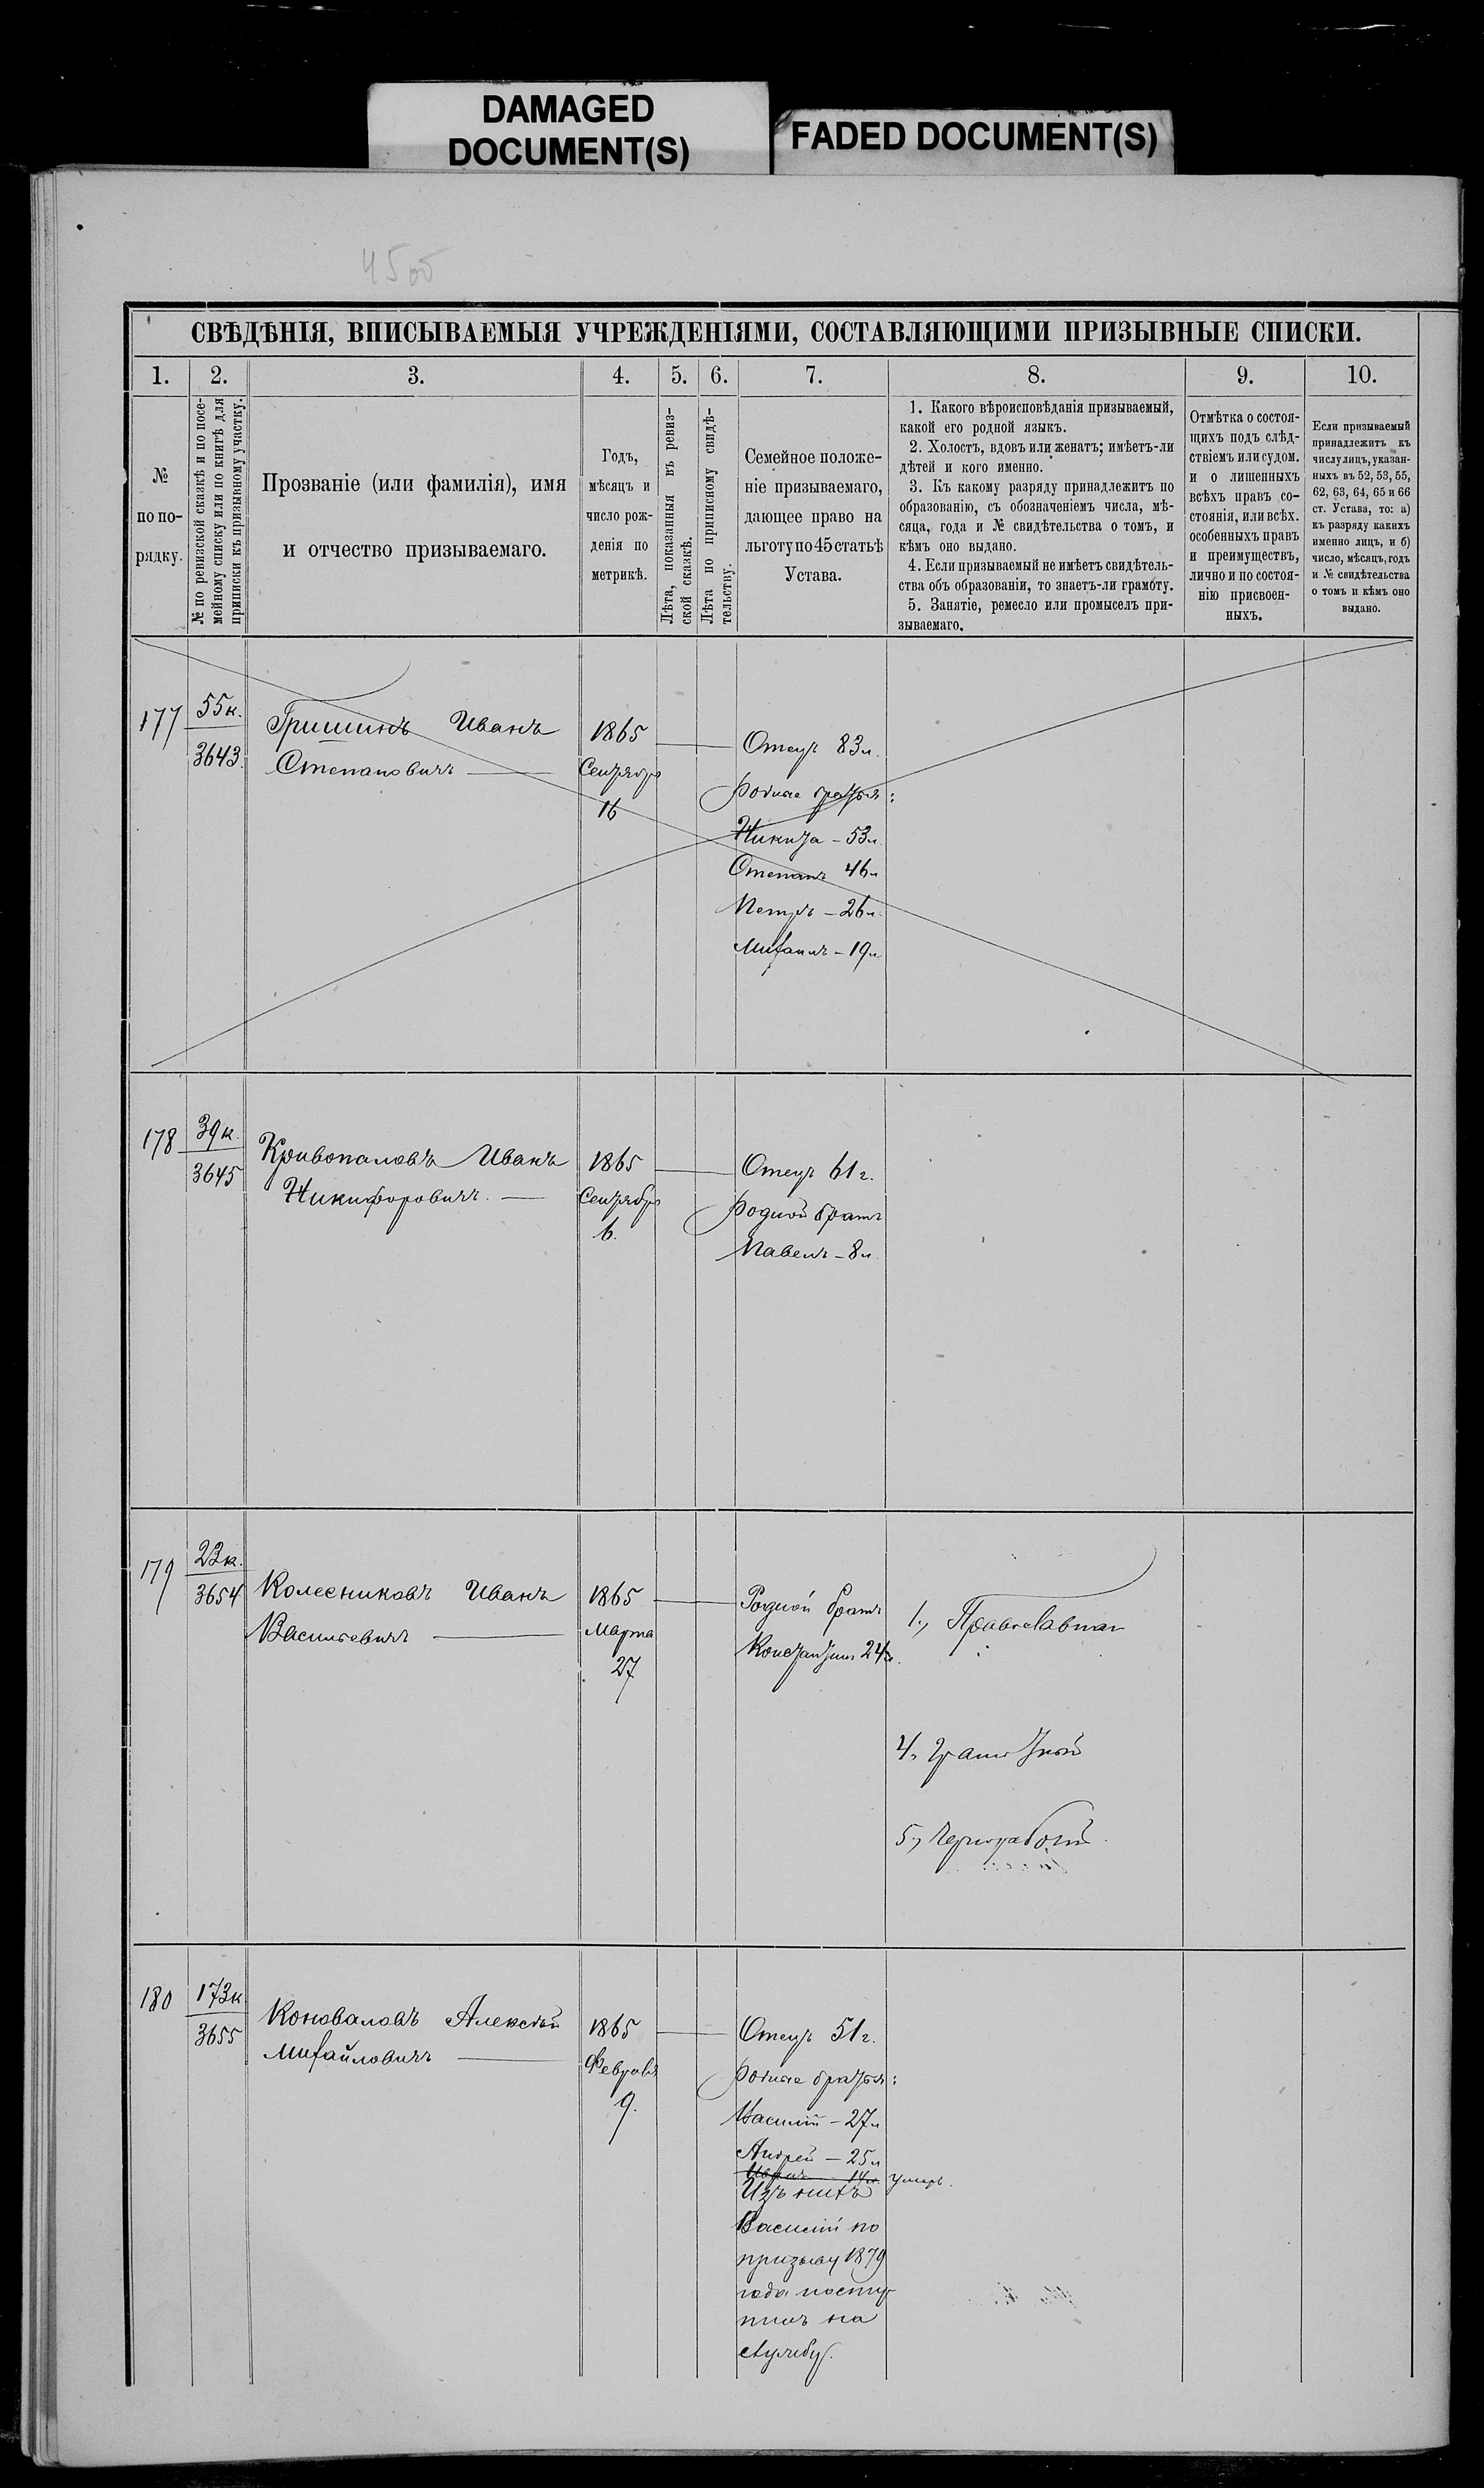 DAMAGED
DOCUMENT(S)
FADED DOCUMENT(S)
45об
СВѢДѢНІЯ, ВПИСЫВАЕМЫЯ УЧРЕЖДЕНІЯМИ, СОСТАВЛЯЮЩИМИ ПРИЗЫВНЫЕ СПИСКИ.
1.
2.
3.
4.
5.
6.
7.
8.
9.
10.
№
по по-
рядку.
№ по ревизской сказкѣ и по посе-
мейному списку или по книгѣ для
приписки къ призывному участку.
Прозваніе (или фамилія), имя
и отчество призываемаго.
Годъ,
мѣсяцъ и
число рож-
денія по
метрикѣ.
Лѣта, показанныя въ ревиз-
ской сказкѣ.
Лѣта по приписному свидѣ-
тельству.
Семейное положе-
ніе призываемаго,
дающее право на
льготу по 45 статьѣ
Устава.
1. Какого вѣроисповѣданія призываемый,
какой его родной языкъ.
2. Холостъ, вдовъ или женатъ; имѣетъ-ли
дѣтей и кого именно.
3. Къ какому разряду принадлежитъ по
образованію, съ обозначеніемъ числа, мѣ-
сяца, года и № свидѣтельства о томъ, и
кѣмъ оно выдано.
4. Если призываемый не имѣетъ свидѣтель-
ства объ образованіи, то знаетъ-ли грамоту.
5. Занятіе, ремесло или промыселъ при-
зываемаго.
Отмѣтка о состоя-
щихъ подъ слѣд-
ствіемъ или судом.
и о лишенныхъ
всѣхъ правъ со-
стоянія, или всѣх.
особенныхъ правъ
и преимуществъ,
лично и по состоя-
нію присвоен-
ныхъ.
Если призываемый
принадлежитъ къ
числу лицъ, указан-
ныхъ въ 52, 53, 55,
62, 63, 64, 65 и 66
ст. Устава, то: а)
къ разряду какихъ
именно лицъ, и б)
число, мѣсяцъ, годъ
и № свидѣтельства
о томъ и кѣмъ оно
выдано.
177
55к.
3643.
Гришинъ Иванъ
Степановичъ
1865
Сентября
16
Отецъ 83л.
родные братья:
Никита – 53л.
Степанъ 46л
Петръ – 26л.
Михаилъ – 19л.
178
39к.
3645
Кривопаловъ Иванъ
Никифоровичъ.
1865
Сентября
6.
Отецъ 61г.
родной братъ
Павелъ – 8л.
179
23к.
3654
Колесниковъ Иванъ
Васильевичъ
1865
Марта
27
Родной братъ
Константинъ 24л.
1., Православнаг
4, Грамотный
5, Чернорабочій
180
173к
3655
Коноваловъ Алексѣй
Михайловичъ
1865
Февраля
9.
Отецъ 51г.
родные братья:
Василій – 27л
Андрей – 25л
Иванъ 14л. умеръ.
Изъ нихъ
Василій по
призыву 1879
года посту-
пилъ на
службу.